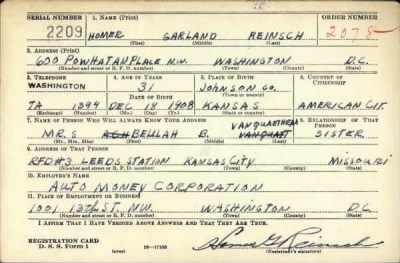 SERIAL NUMBER 1. NAME (Print) ORDER NUMBER
2209 HOMER GARLAND REINSCH 2078
(First) (Middle) (Last)
2. ADDRESS (Print)
600 POWHATAN PLACE N.W. WASHINGTON D.C.
(Number and street or R. F. D. number) (Town) (County) (State)
3. TELEPHONE 4. AGE IN YEARS 5. PLACE OF BIRTH 6. COUNTRY OF CITIZENSHIP
WASHINGTON 31 JOHNSON CO.
DATE OF BIRTH (Town or county)
TA 1394 DEC 18 1908 KANSAS AMERICAN CIT.
(Exchange) (Number) (Mo.) (Day) (Yr.) (State or country)
7. NAME OF PERSON WHO WILL ALWAYS KNOW YOUR ADDRESS 8. RELATIONSHIP OF THAT PERSON
MRS BEULAH B. SISTER
(Mr., Mrs., Miss) (First) (Middle) (Last)
9. ADDRESS OF THAT PERSON
RFD #3 LEEDS STATION KANSAS CITY MISSOURI
(Number and street or R. F. D. number) (Town) (County) (State)
10. EMPLOYER'S NAME
AUTO MONEY CORPORATION
11. PLACE OF EMPLOYMENT OR BUSINESS
1001 13th ST. N.W. WASHINGTON D.C.
(Number and street or R. F. D. number) (Town) (County) (State)
I AFFIRM THAT I HAVE VERIFIED ABOVE ANSWERS AND THAT THEY ARE TRUE.
REGISTRATION CARD
D. S. S. Form 1 (over) 16—17105 Homer G Reinsch
(Registrant's signature)